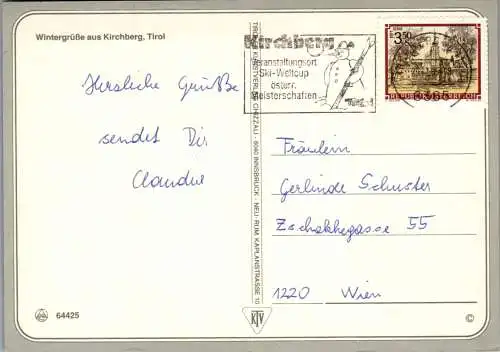 Wintergrüße aus Kirchberg, Tirol
Herzliche Grüße
sendet Dir
Claudia
64425
TIROLER KUNSTVERLAG CHIZZALI · 6040 INNSBRUCK - NEU RUM, KAPLANSTRASSE 10
KTV
Kirchberg
Veranstaltungsort
Ski-Weltcup
österr.
Meisterschaften
Tirol
S 3.50
REPUBLIK ÖSTERREICH
6365
Fräulein
Gerlinde Schuster
Zschokkegasse 55
1220 Wien
©